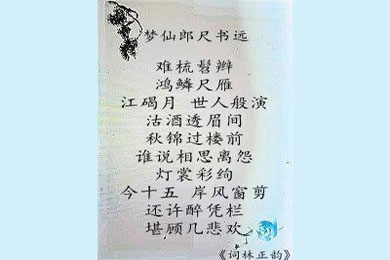 梦仙郎尺书远
难梳髻辫
鸿鳞尺雁
江碣月 世人般演
沽酒透眉间
秋锦过楼前
谁说相思离怨
灯裳彩绚
今十五 岸风窗剪
还许醉凭栏
堪顾几悲欢
《词林正韵》